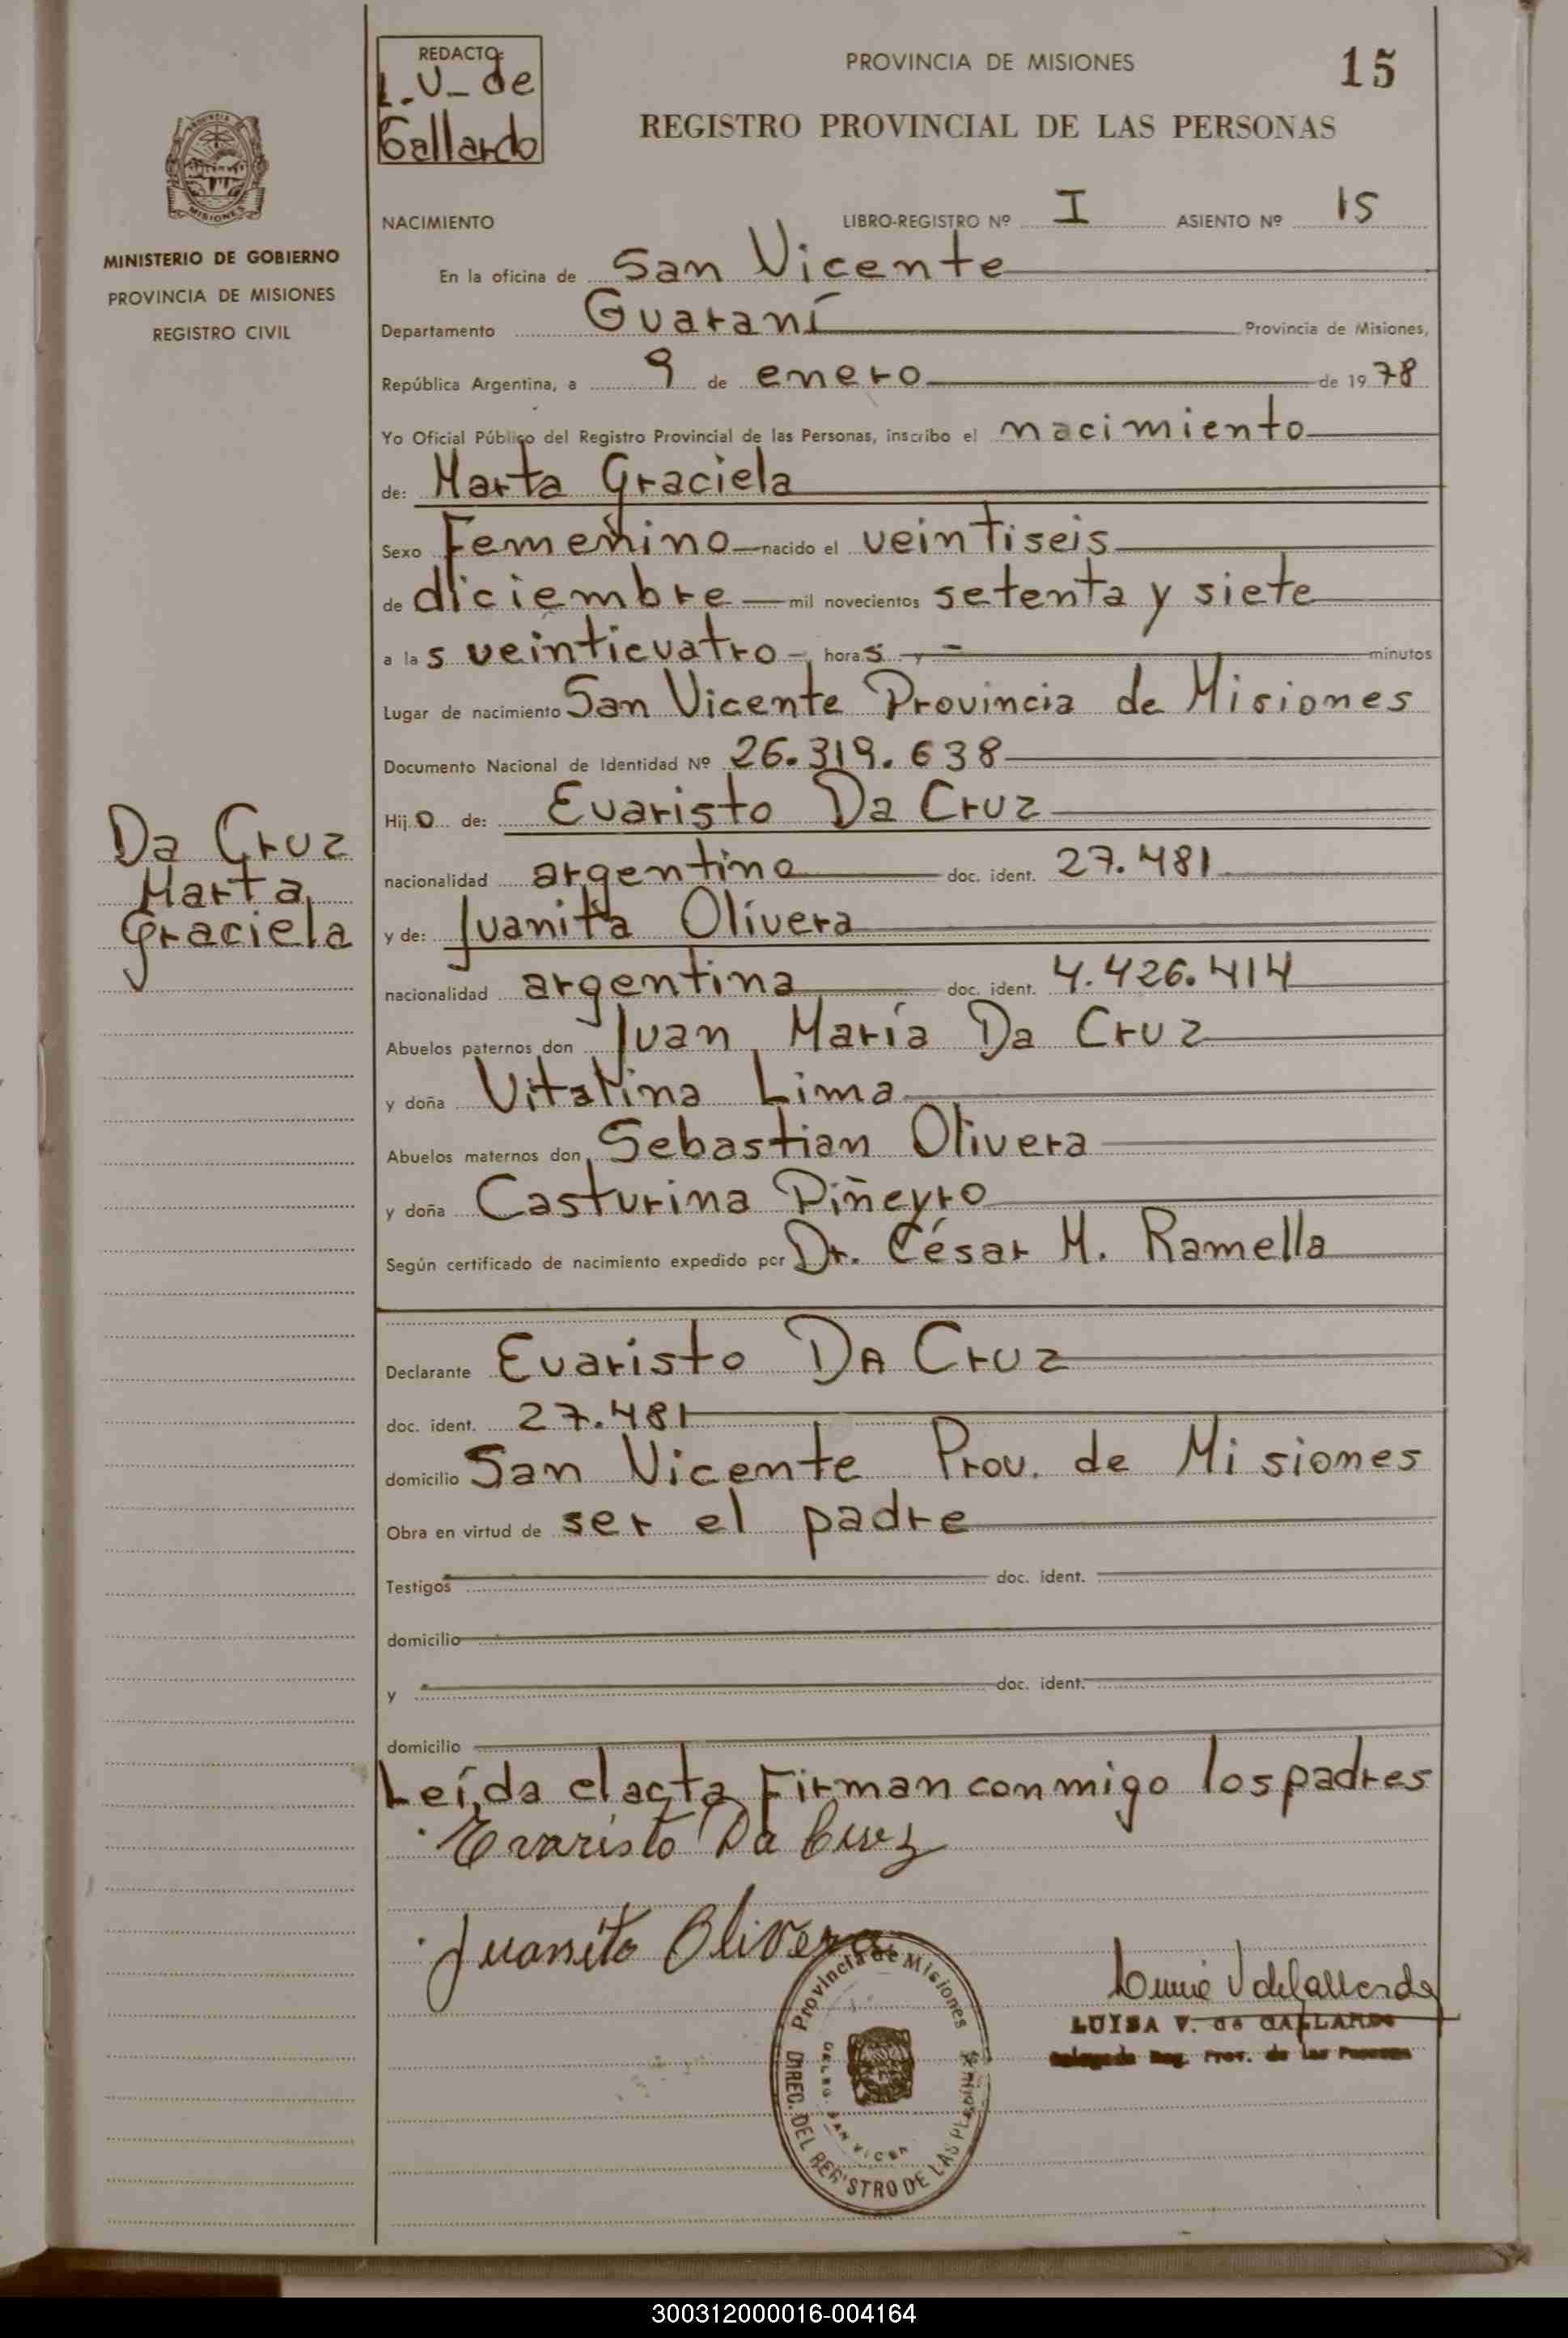 REDACTO:
L.V. de
Gallardo
PROVINCIA DE MISIONES
15
REGISTRO PROVINCIAL DE LAS PERSONAS
MISIONES
MINISTERIO DE GOBIERNO
PROVINCIA DE MISIONES
REGISTRO CIVIL
NACIMIENTO LIBRO-REGISTRO Nº I ASIENTO Nº 15
En la oficina de San Vicente
Departamento Guaraní Provincia de Misiones,
República Argentina, a 9 de enero de 1978
Yo Oficial Público del Registro Provincial de las Personas, inscribo el nacimiento
de: Marta Graciela
Sexo Femenino nacido el veintiseis
de diciembre mil novecientos setenta y siete
a las veinticuatro horas y — minutos
Lugar de nacimiento San Vicente Provincia de Misiones
Documento Nacional de Identidad Nº 26.319.638
Hijo de: Evaristo Da Cruz
Da Cruz
Marta
Graciela
nacionalidad argentino doc. ident. 27.481
y de: Juanita Olivera
nacionalidad argentina doc. ident. 4.426.414
Abuelos paternos don Juan María Da Cruz
y doña Vitalina Lima
Abuelos maternos don Sebastian Olivera
y doña Casturina Piñeyro
Según certificado de nacimiento expedido por Dr. César M. Ramella
Declarante Evaristo DA Cruz
doc. ident. 27.481
domicilio San Vicente Prov. de Misiones
Obra en virtud de ser el padre
Testigos doc. ident.
domicilio
y doc. ident.
domicilio
Leída el acta Firman conmigo los padres
Evaristo Da Cruz
Juanita Olivera
Provincia de Misiones
DIREC. DEL REGISTRO DE LAS
LUISA V. de GALLARDO
Delegada Reg. Prov. de las Personas
300312000016-004164